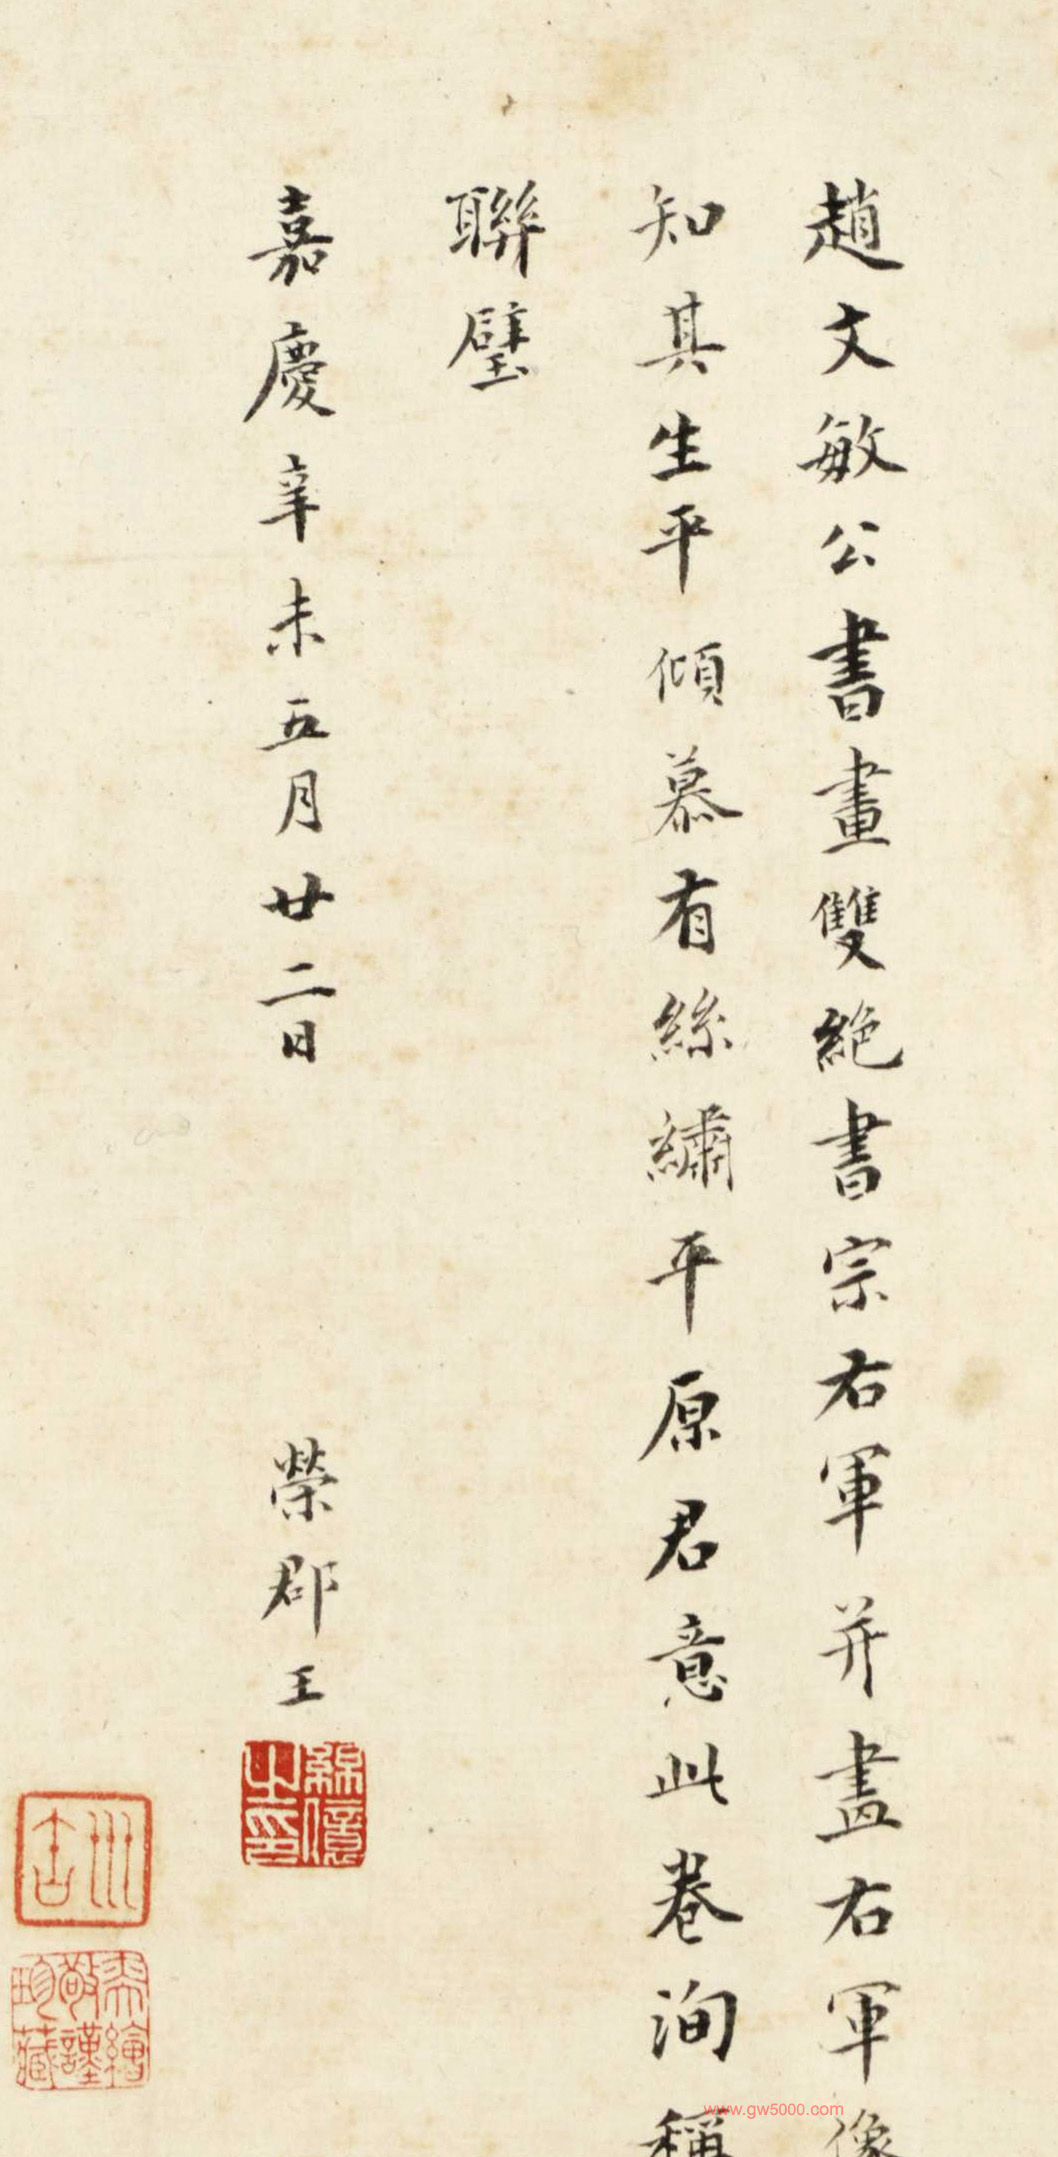 趙文敏公書畫雙絶書宗右軍并畫右軍像
知其生平傾慕有絲繡平原君意此卷洵稱
聯璧
嘉慶辛未五月廿二日
榮郡王
綿億之印
珍藏
www.gw5000.com